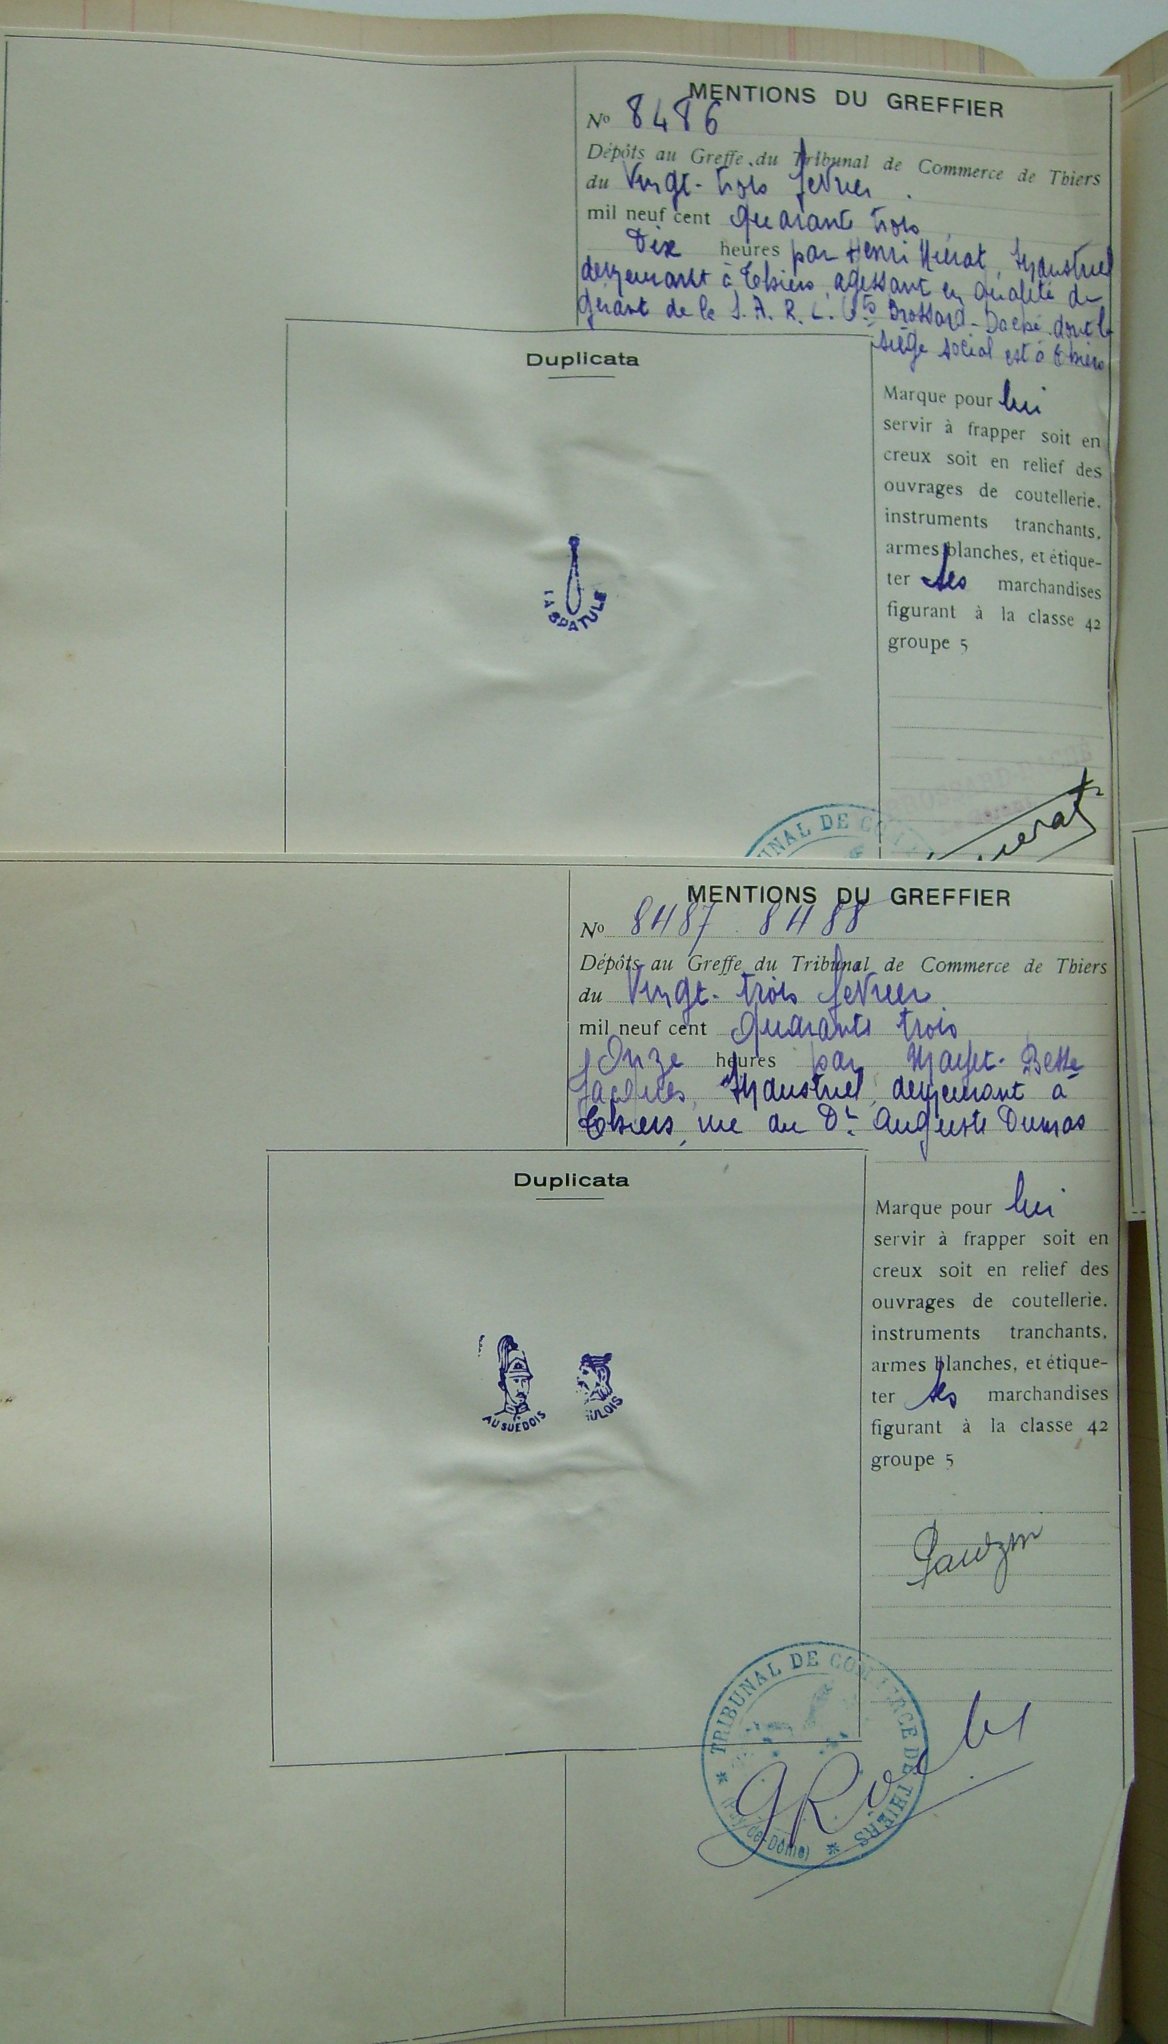 MENTIONS DU GREFFIER
No 8486
Dépôts au Greffe du Tribunal de Commerce de Thiers
du Vingt-trois fevrier
mil neuf cent quarante trois
Dix heures par Henri Mierat, Industriel
demeurant à Thiers, agissant en qualité de
gérant de la S.A.R.L. Ets Brossard-Daché dont le
siège social est à Thiers
Duplicata
LA SPATULE
Marque pour lui
servir à frapper soit en
creux soit en relief des
ouvrages de coutellerie,
instruments tranchants,
armes blanches, et étique-
ter ses marchandises
figurant à la classe 42
groupe 5
UNAL DE CO
MENTIONS DU GREFFIER
No 8487 8488
Dépôts au Greffe du Tribunal de Commerce de Thiers
du Vingt-trois fevrier
mil neuf cent quarante trois
Onze heures par Mayet-Besse
Jacques, Industriel, demeurant à
Thiers, rue du Dr Auguste Dumas
Duplicata
AU SUEDOIS
ULOIS
Marque pour lui
servir à frapper soit en
creux soit en relief des
ouvrages de coutellerie,
instruments tranchants,
armes blanches, et étique-
ter ses marchandises
figurant à la classe 42
groupe 5
* TRIBUNAL DE COMMERCE DE THIERS *
(Puy-de-Dôme)